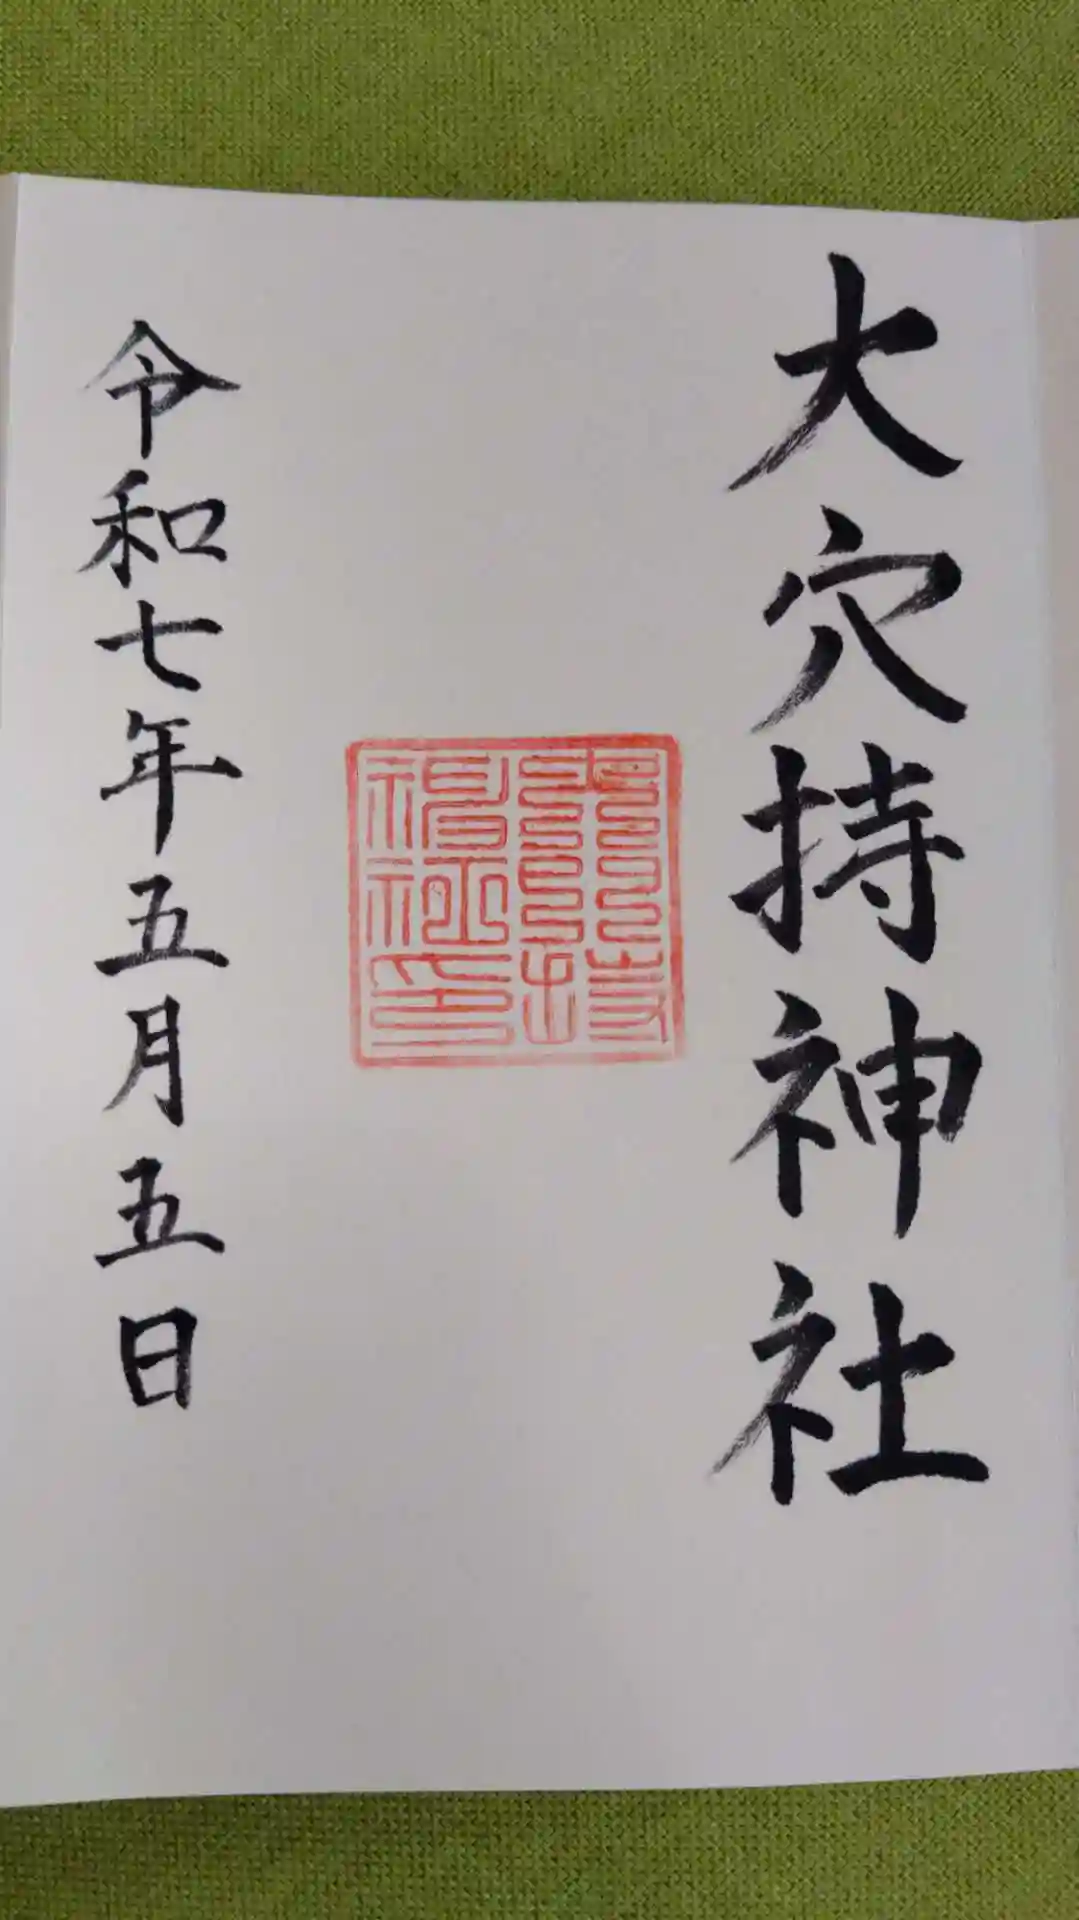 大穴持神社
令和七年五月五日